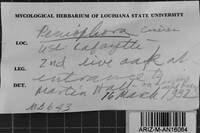 MYCOLOGICAL HERBARIUM OF LOUISIANA STATE UNIVERSITY
Peniophora cinerea
LOC. USL Lafayette
2nd live oak at
LEG. entrance to
DET. Martin Hall
16 March 1972
MB643
ARIZ-M-AN16064